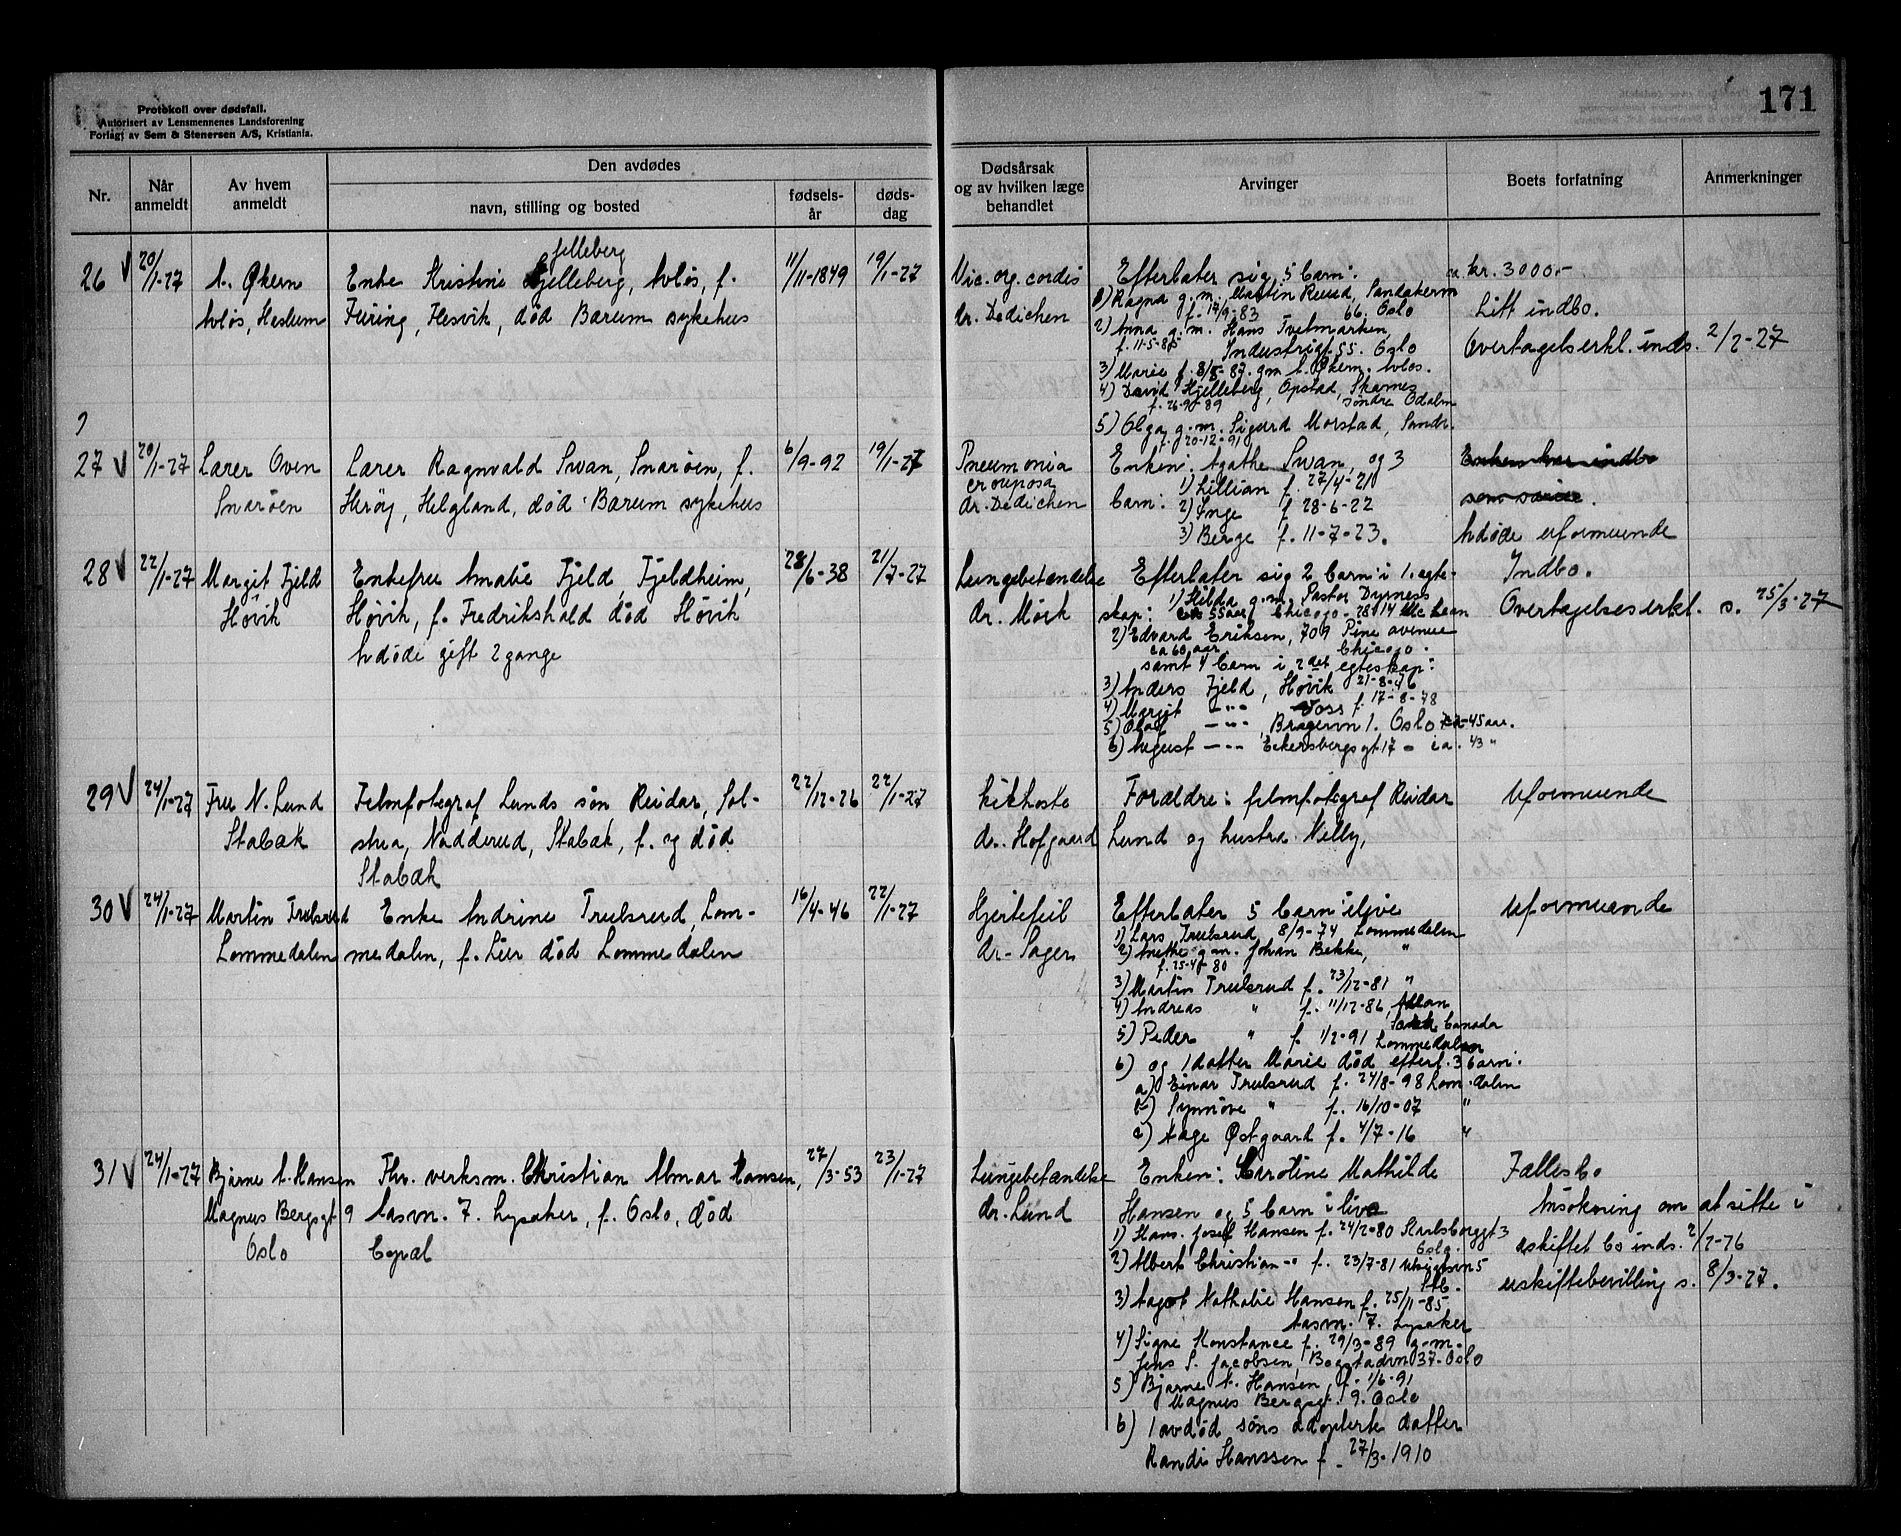 Protokoll over dødsfall.
Autorisert av Lensmennenes Landsforening
Forlagt av Sem & Stenersen A/S, Kristiania.
171
Nr.
Når anmeldt
Av hvem anmeldt
Den avdødes
navn, stilling og bosted
fødsels-år
døds-dag
Dødsårsak og av hvilken læge behandlet
Arvinger
Boets forfatning
Anmerkninger
26 20/1-27
A. Økern
Avløs, Haslum
Enke Kristine Gjelleberg, Avløs, f.
Furing, Hesvik, død Bærum sykehus
11/11-1849
19/1-27
Vic. org. cordis
dr. Dedichen
Efterlater sig 5 barn:
1) Ragna g.m. Martin Ruud, Sandakervn
f. 17/9-83 66. Oslo
2) Anna g.m. Hans Tvetmarken
f. 11-5-85 Industrigt. 55. Oslo
3) Marie f. 8/8-87. gm A. Økern. Avløs.
4) David Hjelleberg, Opstad, Skarnes
f. 26-9-89 søndre Odalen
5) Olga g.m. Sigurd Morstad, Sandv.
f. 20-12-91
ca. kr. 3000.-
Litt indbo.
Overtagelseserkl. inds. 2/2-27
27 20/1-27
Lærer Oven
Snarøen
Lærer Ragnvald Swan, Snarøen, f.
Herøy, Helgland, død Bærum sykehus
6/9-92
19/1-27
Pneumonia
crouposa
dr. Dedichen
Enken: Agathe Swan, og 3
barn: 1) Lillian f. 27/4-21
2) Inge f 28-6-22
3) Berge f. 11-7-23.
Enken har indbo
Avdøde uformuende
28 22/1-27
Margit Fjeld
Høvik
Enkefru Amalie Fjeld, Fjeldheim,
Høvik, f. Fredrikshald død Høvik
Avdøde gift 2 gange
28/6-38
21/7-27
Lungebetændelse
dr. Mörk
Efterlater sig 2 barn i 1. egte-
skap: 1) Hilda g.m. Pastor Dyrness
55 aar, Chicago - 2814 Mc Lean
2) Edvard Eriksen, 709 Pine avenue
ca 60 aar. Chicago.
samt 4 barn i 2det egteskap:
3) Anders Fjeld, Høvik 21-8-76
4) Margit -"- Voss f. 17-8-78
5) Olaf -"- Bragevn 1. Oslo ca-45 aar.
6) August -"- Eckersbergsgt 17 - ca. 43 "
Indbo.
Overtagelseserkl. s. 25/3-27
29 24/1-27
Fru N. Lund
Stabæk
Filmfotograf Lunds søn Reidar, Sol-
stua, Nadderud, Stabæk, f. og død
Stabæk
22/12-26
22/1-27
Kikhoste
dr. Hofgaard
Forældre: filmfotograf Reidar
Lund og hustru Nelly,
Uformuende
30 24/1-27
Martin Trulsrud
Lommedalen
Enke Andrine Trulsrud, Lom-
medalen, f. Lier død Lommedalen
16/4-46
22/1-27
Hjertefeil
dr. Sager
Efterlater 5 barn ilive
1) Lars Trulsrud 8/9-74 Lommedalen
2) Anethe g.m. Johan Bekke, "
f. 25-4-80
3) Martin Trulsrud f. 23/12-81 "
4) Andreas " f. 11/12-86,
Canada
5) Peder " f 1/2-91 Lommedalen
6) og 1 datter Marie død efterl. 3 barn:
a) Einar Trulsrud f. 24/8-98 Lom.dalen
b) Synnöve " f. 16/10-07 "
c) Aage Østgaard f. 4/7-16 "
Uformuende
31 24/1-27
Bjarne A. Hansen
Magnus Bergsgt. 9
Oslo
Fhv. verksm. Christian Almar Hansen,
Aasvn. 7. Lysaker, f. Oslo, død
27/3-53
23/1-27
Lungebetændelse
dr. Lund
Enken: Caroline Mathilde
Hansen og 5 barn i live
1) Hans Josef Hansen f. 24/2-80 Karlsborggt 3
Oslo.
2) Albert Christian -" f. 23/7-81
Stb.
3) Aagot Nathalie Hansen f. 25/11-85
Aasvn. 7. Lysaker
4) Signe Konstance f. 29/3-89 g.m.
Jens S. Jacobsen, Bogstadvn 37. Oslo
5) Bjarne A. Hansen, f. 1/6-91
Magnus Bergsgt. 9. Oslo
6) 1 avdød søns adopterte datter
Randi Hanssen f. 27/3-1910
Fællesbo
Ansøkning om at sitte i
uskiftet bo inds. 2/2-26
uskiftebevilling s. 8/3-27.